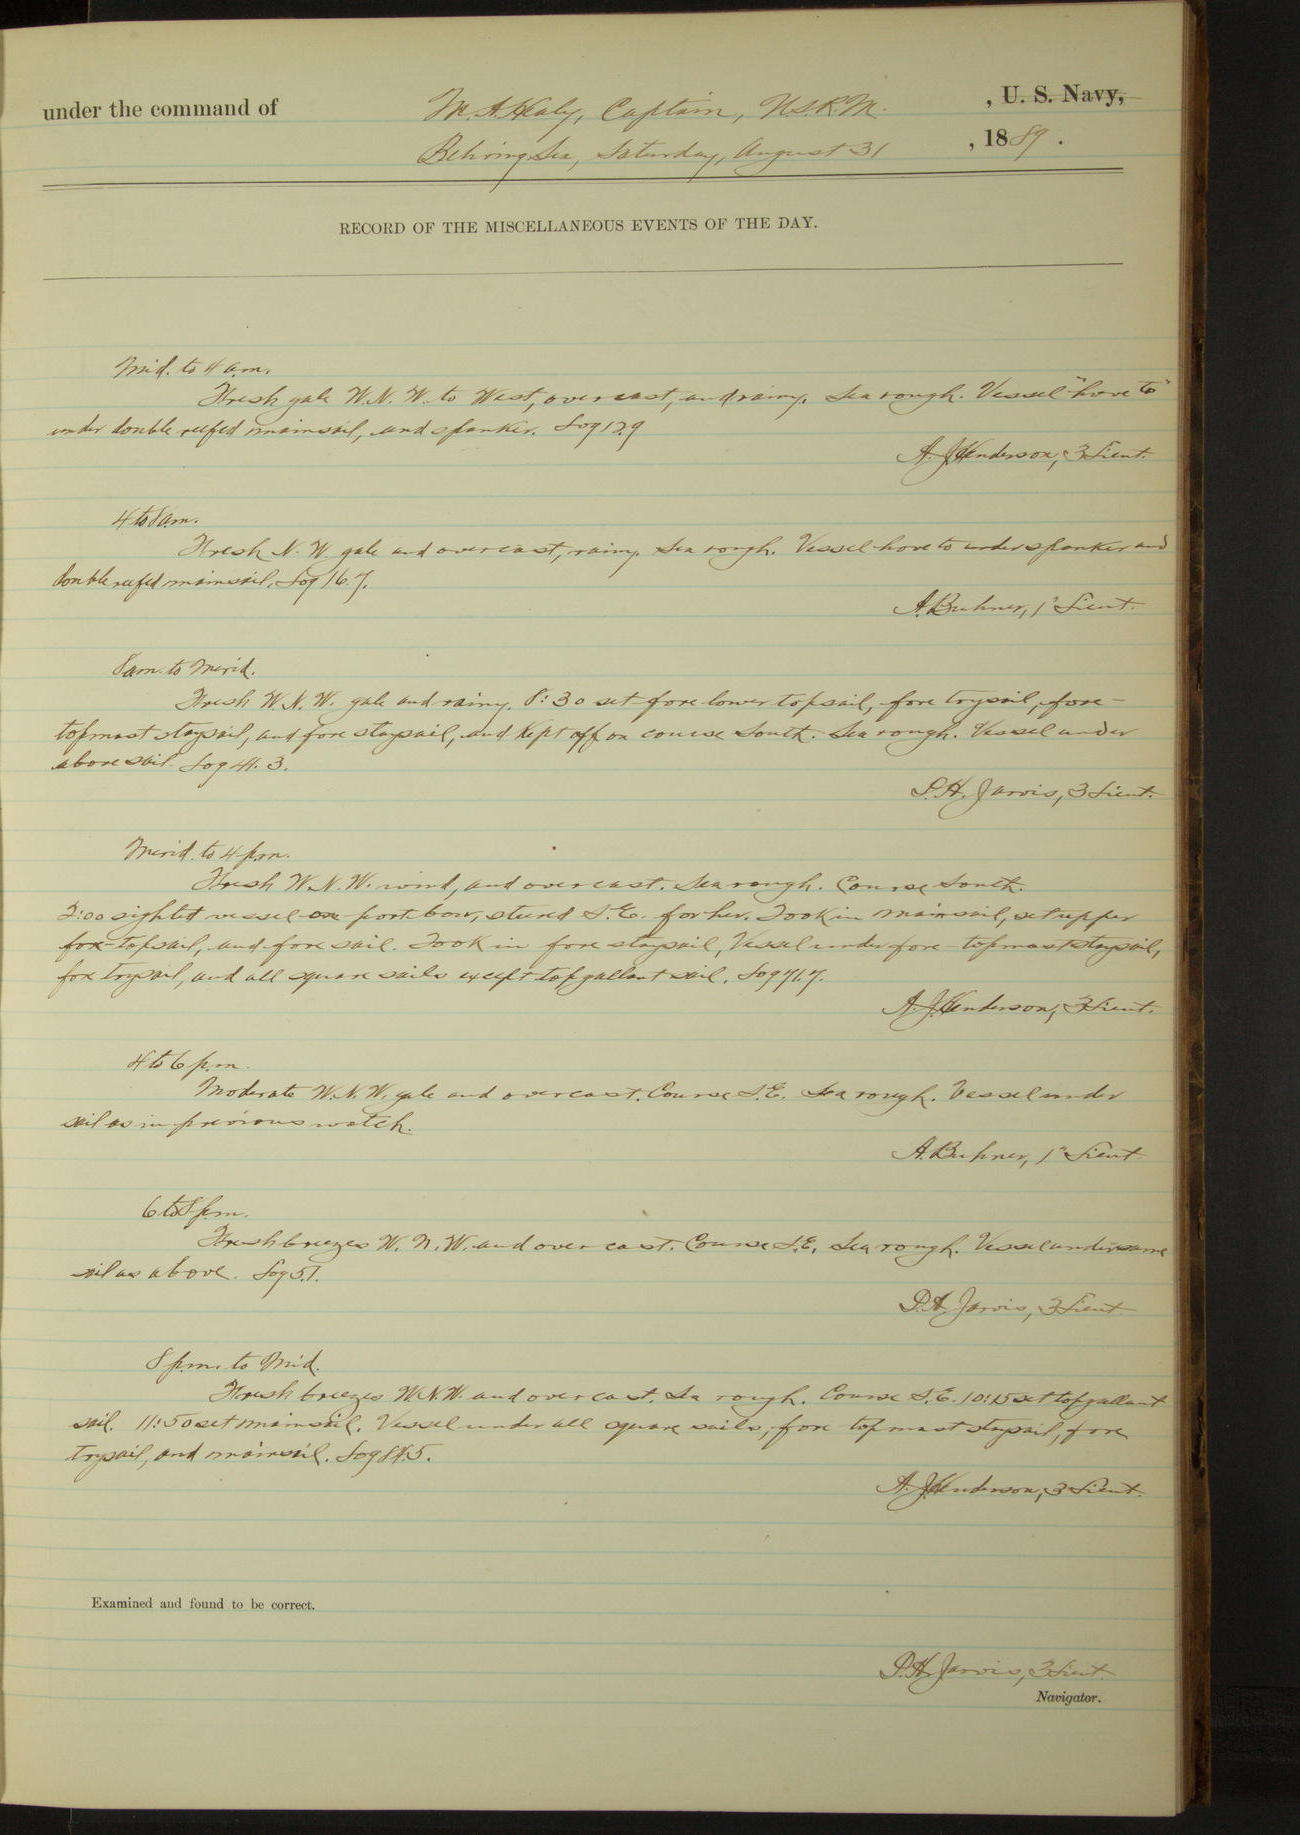 under the command of M. A. Healy, Captain, U.S.R.M. , U. S. Navy,
Behring Sea, Saturday, August 31 , 1889 .
RECORD OF THE MISCELLANEOUS EVENTS OF THE DAY.
Mid. to 4 a.m.
Fresh gale W.N.W. to West, overcast, and rainy. Sea rough. Vessel "hove to"
under double reefed mainsail, and spanker. Log 12.9
A. J. Henderson, 3 Lieut.
4 to 8 a.m.
Fresh N.W. gale and overcast, rainy. Sea rough. Vessel hove to under spanker and
double reefed mainsail. Log 16.7.
A. Buhner, 1" Lieut.
8 a.m. to Merid.
Fresh W.N.W. gale and rainy. 8:30 set fore lower topsail, fore trysail, fore-
topmast staysail, and fore staysail, and kept off on course South. Sea rough. Vessel under
above sail. Log 41.3.
D.H. Jarvis, 3 Lieut.
Merid. to 4 p.m.
Fresh W.N.W. wind, and overcast. Sea rough. Course South.
2:00 sighted vessel on port bow, steered S.E. for her. Took in mainsail, set upper
fore-topsail, and fore sail. Took in fore staysail, Vessel under fore-topmast staysail,
fore trysail, and all square sails except topgallant sail. Log 71.7.
A. J. Henderson, 3 Lieut.
4 to 6 p.m.
Moderate W.N.W. gale and overcast. Course S.E. Sea rough. Vessel under
sail as in previous watch.
A. Buhner, 1" Lieut
6 to 8 p.m.
Fresh breezes W.N.W. and overcast. Course S.E. Sea rough. Vessel under same
sail as above. Log 51.
D.H. Jarvis, 3 Lieut
8 p.m. to Mid.
Fresh breezes W.N.W. and overcast. Sea rough. Course S.E. 10:15 set topgallant
sail. 11:50 set mainsail. Vessel under all square sails, fore topmast staysail, fore
trysail, and mainsail. Log 84.5.
A. J. Henderson, 3 Lieut.
Examined and found to be correct.
D.H. Jarvis, 3 Lieut.
Navigator.